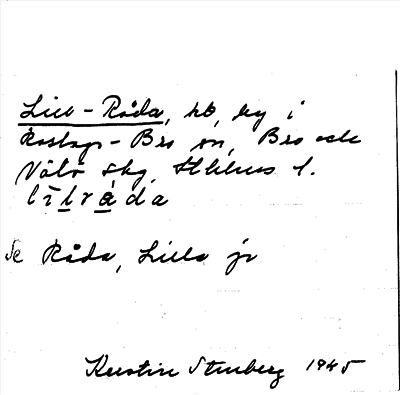 Lill-Råda, hb, by i
Roslags-Bro sn, Bro och
Vätö skg, Sthlms l.
lī́lråda
Se Råda, Lilla jr
Kerstin Stenberg 1945